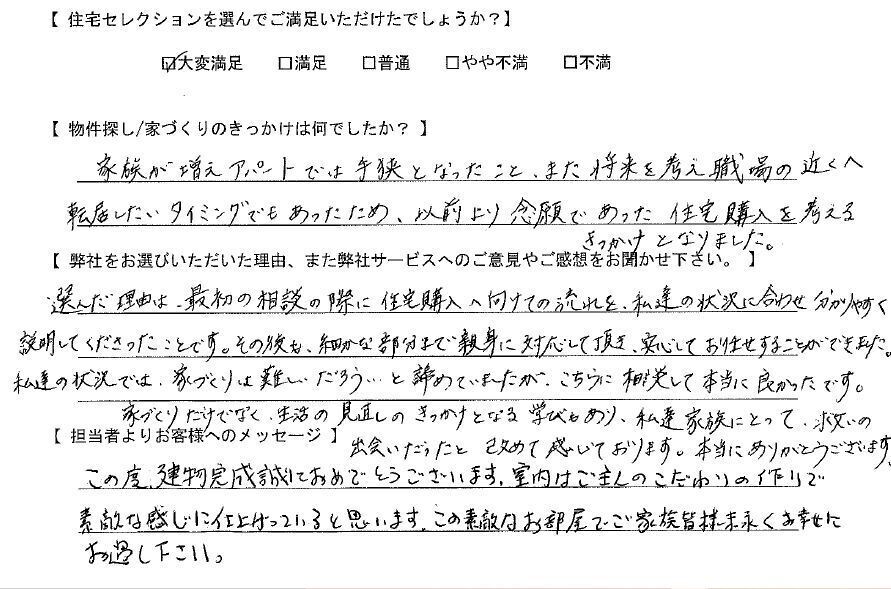 【 住宅セレクションを選んでご満足いただけたでしょうか？】
☑大変満足 □満足 □普通 □やや不満 □不満
【 物件探し/家づくりのきっかけは何でしたか？ 】
家族が増えアパートでは手狭となったこと、また将来を考え職場の近くへ
転居したいタイミングでもあったため、以前より念願であった住宅購入を考える
きっかけとなりました。
【 弊社をお選びいただいた理由、また弊社サービスへのご意見やご感想をお聞かせ下さい。 】
選んだ理由は、最初の相談の際に住宅購入へ向けての流れを、私達の状況に合わせ分かりやすく
説明してくださったことです。その後も、細かな部分まで親身に対応して頂き、安心してお任せすることができました。
私達の状況では、家づくりは難しいだろう…と諦めていましたが、こちらに相談して本当に良かったです。
家づくりだけでなく、生活の見直しのきっかけとなる学びもあり、私達家族にとって、救いの
出会いだったと改めて感じております。本当にありがとうございます。
【 担当者よりお客様へのメッセージ 】
この度、建物完成誠におめでとうございます。室内はご主人のこだわりの作りで
素敵な感じに仕上がっていると思います。この素敵なお部屋でご家族皆様末永くお幸せに
お過し下さい。